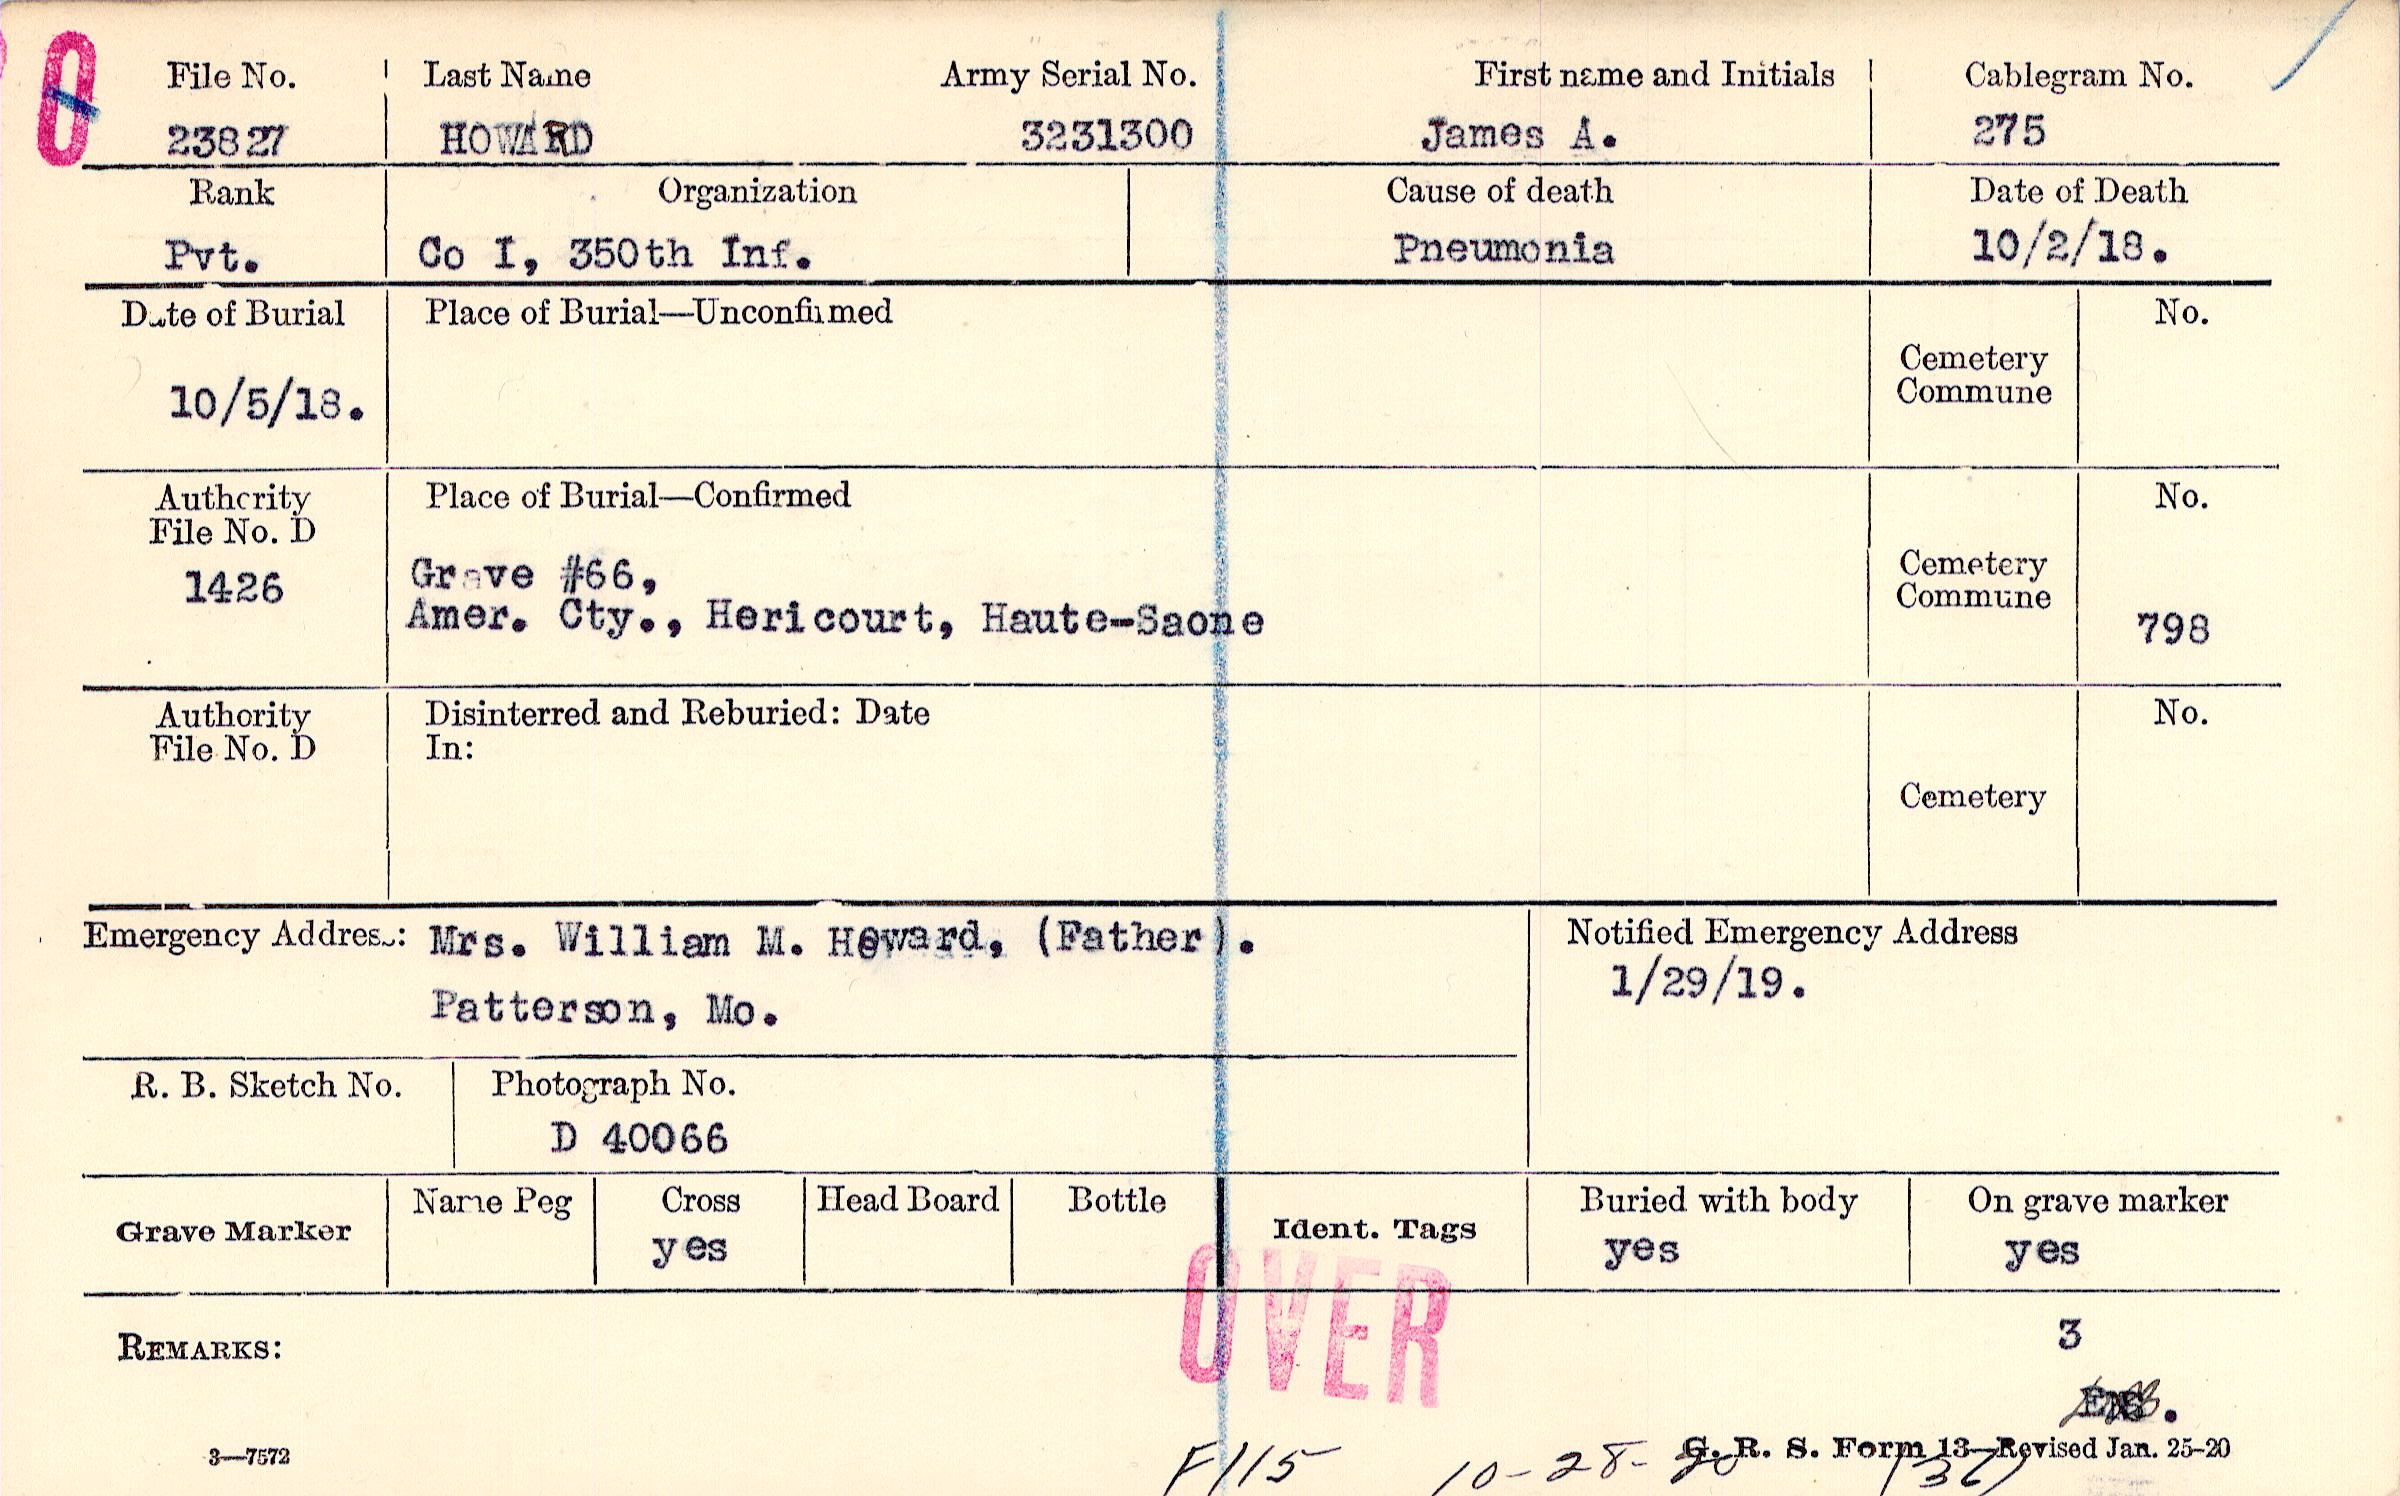 O
File No. Last Name Army Serial No. First name and Initials Cablegram No.
23827 HOWARD 3231300 James A. 275
Rank Organization Cause of death Date of Death
Pvt. Co I, 350th Inf. Pneumonia 10/2/18.
Date of Burial Place of Burial—Unconfirmed No.
Cemetery
Commune
10/5/18.
Authority Place of Burial—Confirmed No.
File No. D
1426 Grave #66,
Amer. Cty., Hericourt, Haute-Saone
Cemetery
Commune
798
Authority Disinterred and Reburied: Date No.
File No. D In:
Cemetery
Emergency Address: Mrs. William M. Howard, (Father).
Patterson, Mo.
Notified Emergency Address
1/29/19.
R. B. Sketch No. Photograph No.
D 40066
Grave Marker Name Peg Cross Head Board Bottle Ident. Tags Buried with body On grave marker
yes yes yes
OVER
REMARKS:
3
3—7572 G. R. S. Form 13—Revised Jan. 25-20
F115 10-28-20